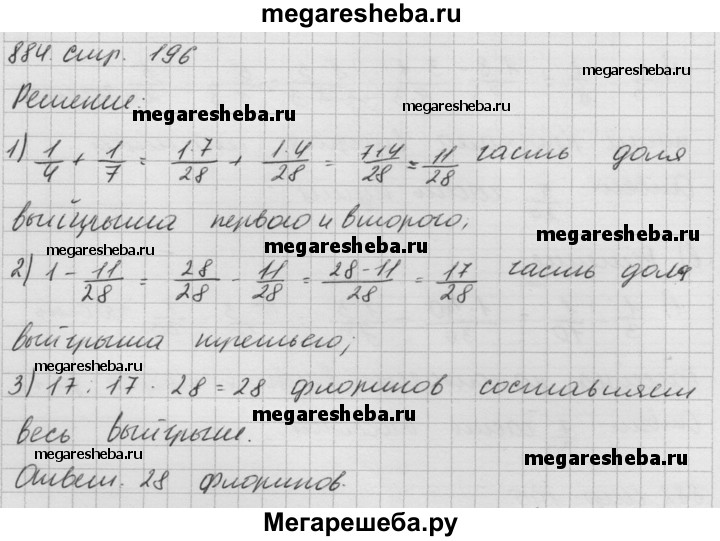 megaresheba.ru
884. стр. 196
megaresheba.ru
Решение:
megaresheba.ru
megaresheba.ru
1) 1/4 + 1/7 = 1·7/28 + 1·4/28 = 7+4/28 = 11/28 часть доля
выигрыша первого и второго;
megaresheba.ru
megaresheba.ru
megaresheba.ru
2) 1 - 11/28 = 28/28 - 11/28 = 28-11/28 = 17/28 часть доля
выйгрыша третьего;
megaresheba.ru
3) 17 : 17 · 28 = 28 флоринов составляет
megaresheba.ru
весь выйгрыш.
megaresheba.ru
megaresheba.ru
Ответ: 28 флоринов.
Мегарешеба.ру